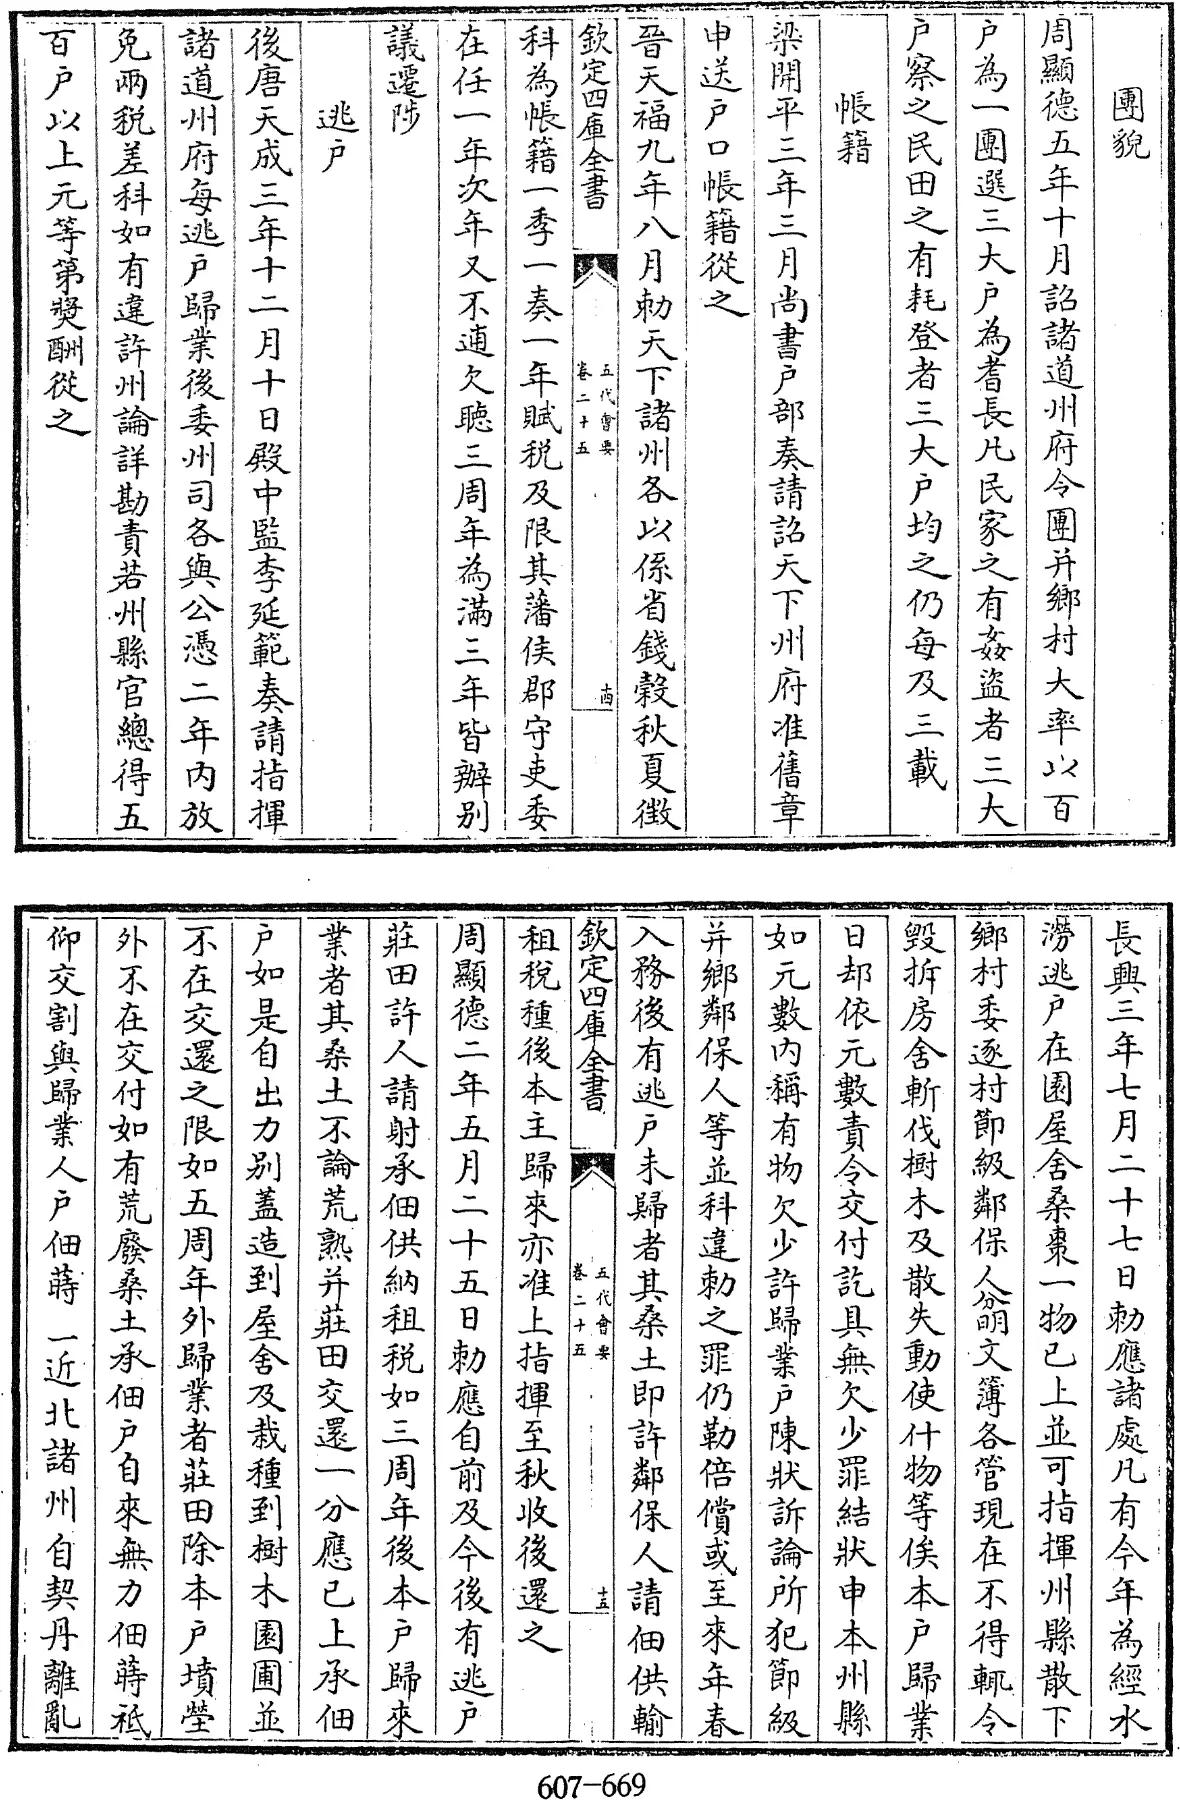 團貌
周顯德五年十月詔諸道州府令團并鄉村大率以百
户為一團選三大户為耆長凡民家之有姦盜者三大
户察之民田之有耗登者三大户均之仍每及三載
帳籍
梁開平三年三月尚書户部奏請詔天下州府准舊章
申送户口帳籍從之
晉天福九年八月勅天下諸州各以係省錢穀秋夏徴
欽定四庫全書
五代會要
卷二十五
十四
科為帳籍一季一奏一年賦税及限其藩侯郡守吏委
在任一年次年又不逋欠聽三周年為滿三年皆辦别
議遷陟
逃户
後唐天成三年十二月十日殿中監李延範奏請指揮
諸道州府每逃户歸業後委州司各與公憑二年内放
免兩税差科如有違許州論詳勘責若州縣官總得五
百户以上元等第奬酬從之
長興三年七月二十七日勅應諸處凡有今年為經水
澇逃户在園屋舍桑棗一物已上並可指揮州縣散下
鄉村委逐村節級鄰保人分明文簿各管現在不得輒令
毁拆房舍斬伐樹木及散失動使什物等俟本户歸業
日却依元數責令交付訖具無欠少罪結狀申本州縣
如元數内稱有物欠少許歸業户陳狀訴論所犯節級
并鄉鄰保人等並科違勅之罪仍勒倍償或至來年春
入務後有逃户未歸者其桑土即許鄰保人請佃供輸
欽定四庫全書
五代會要
卷二十五
十五
租税種後本主歸來亦准上指揮至秋收後還之
周顯德二年五月二十五日勅應自前及今後有逃户
莊田許人請射承佃供納租税如三周年後本户歸來
業者其桑土不論荒熟并莊田交還一分應已上承佃
户如是自出力别蓋造到屋舍及栽種到樹木園圃並
不在交還之限如五周年外歸業者莊田除本户墳塋
外不在交付如有荒廢桑土承佃户自來無力佃蒔祗
仰交割與歸業人户佃蒔 一近北諸州自契丹離亂
607-669